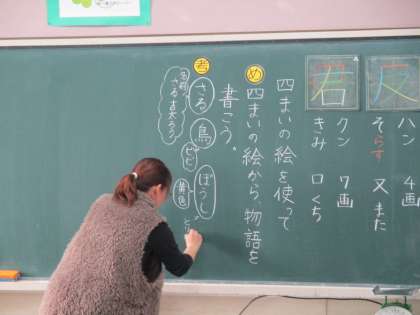 反
ハン 4画
そらす 又 また
君
クン 7画
きみ 口 くち
四まいの絵を使って
め
四まいの絵から、物語を
書こう。
考
さる 鳥 ぼうし
名前
さる 吉
ピピ
黄色